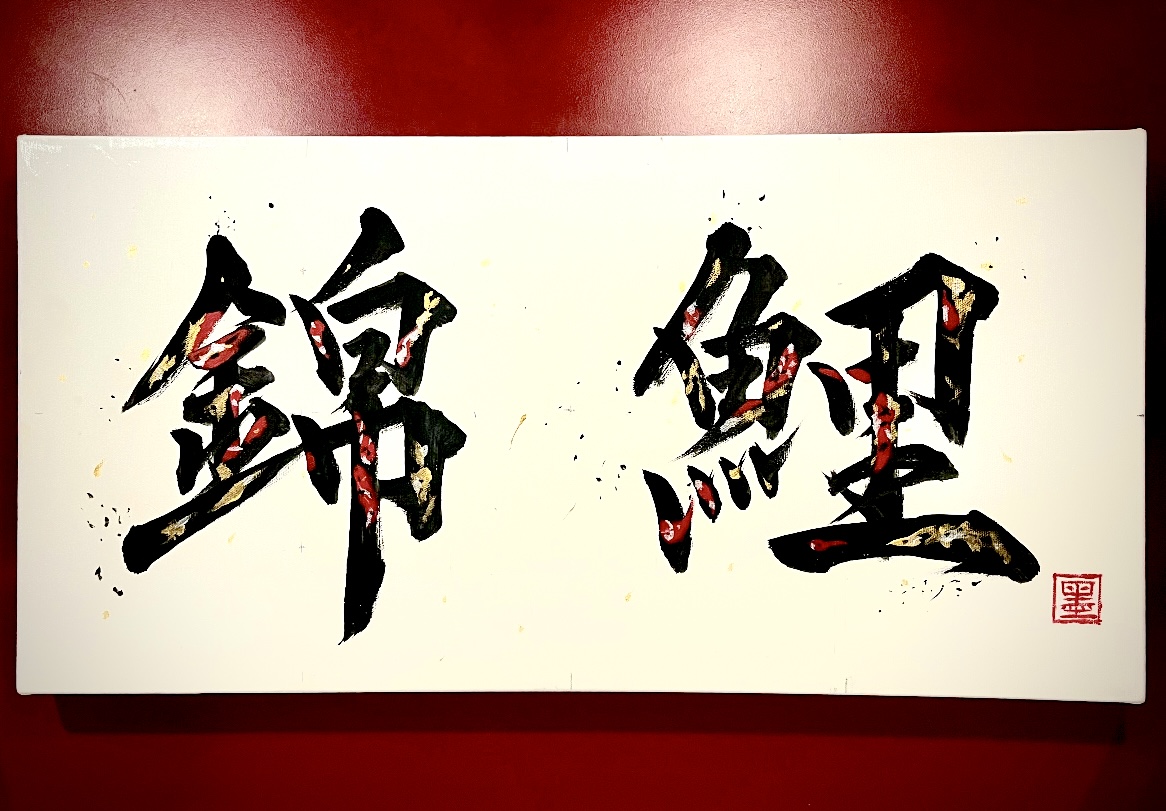 錦鯉
墨